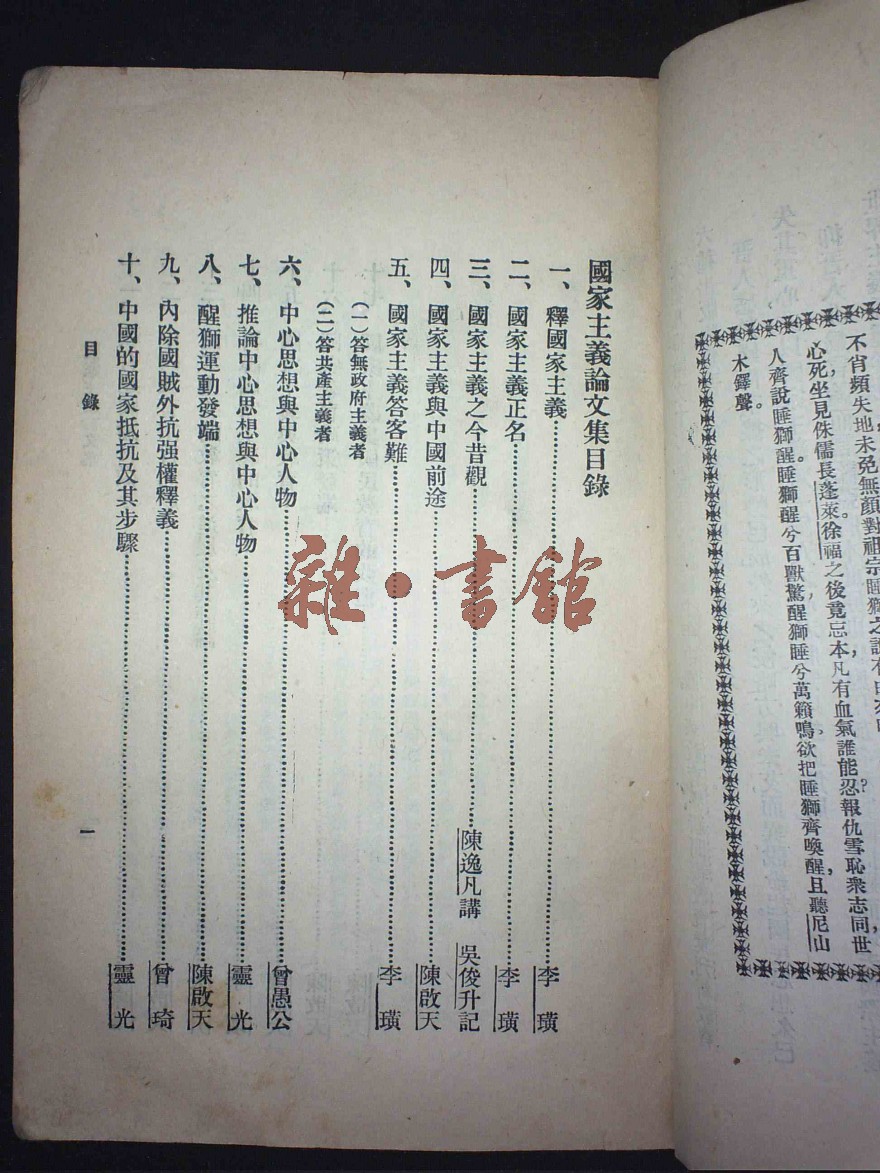 不肖頻失地未免無顏對祖宗睡獅之說
心死，坐見侏儒長蓬萊。徐福之後竟忘本凡有血氣誰能忍？報仇雪恥衆志同，世
人齊說睡獅醒睡獅醒兮百獸驚醒獅睡兮萬籟鳴欲把睡獅齊喚醒，且聽尼山
木鐸聲。
國家主義論文集目錄
一、釋國家主義……李璜
二、國家主義正名……李璜
三、國家主義之今昔觀……陳逸凡講 吳俊升記
四、國家主義與中國前途……陳啟天
五、國家主義答客難……李璜
（一）答無政府主義者
（二）答共產主義者
六、中心思想與中心人物……曾愚公
七、推論中心思想與中心人物……靈光
八、醒獅運動發端……陳啟天
九、內除國賊外抗强權釋義……曾琦
十、中國的國家抵抗及其步驟……靈光
目錄
一
雜·書館